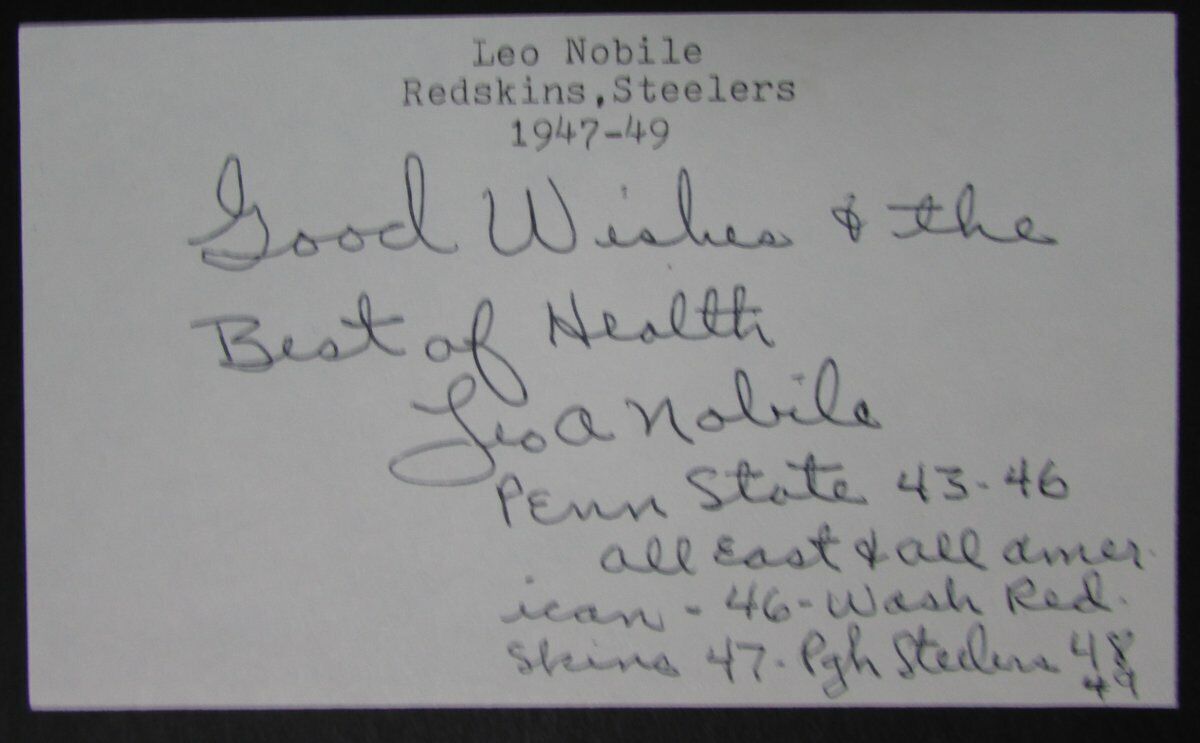 Leo Nobile
Redskins,Steelers
1947-49
Good Wishes & the
Best of Health
Leo A Nobile
Penn State 43-46
all East & all amer-
ican - 46 - Wash Red-
skins 47 - Pgh Steelers 48
49